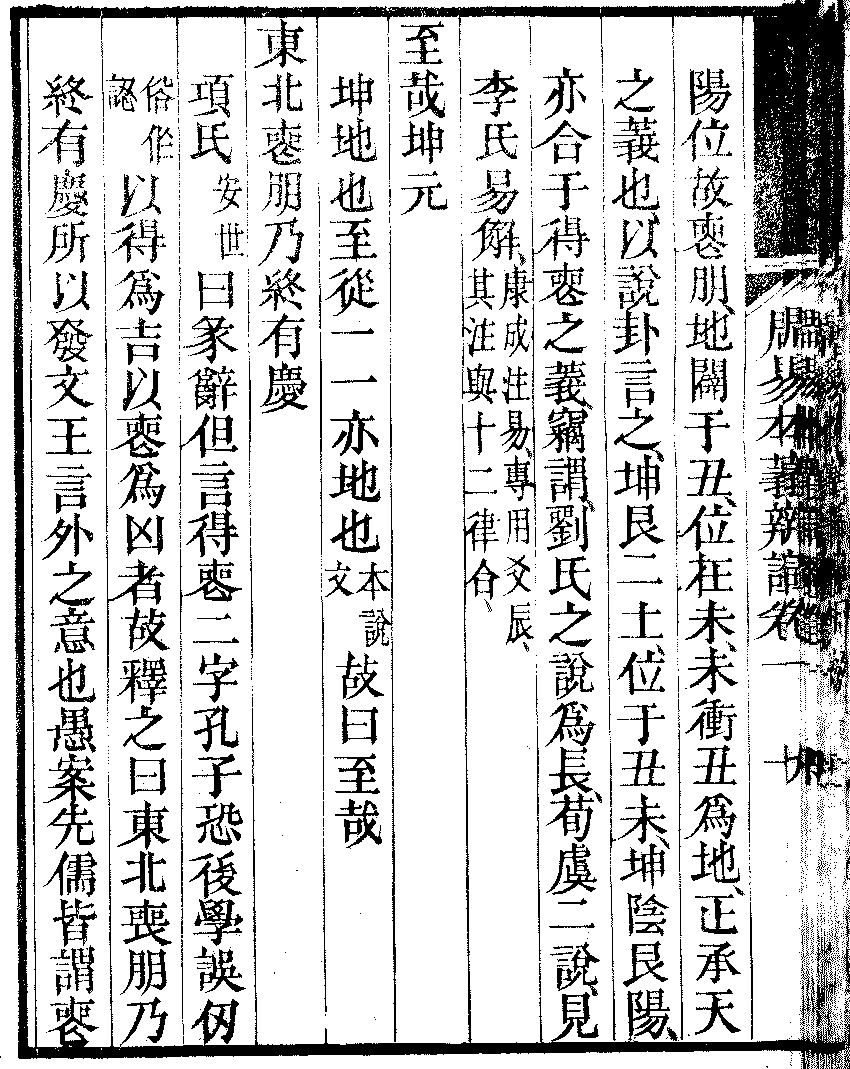 周易本義辨證卷一
陽位故喪朋、地闢于丑、位在未、未衝丑爲地、正承天
之義也、以說卦言之、坤艮二土、位于丑未、坤陰艮陽、
亦合于得喪之義、竊謂、劉氏之說爲長、荀虞二說、見
李氏易解、康成注易、專用爻辰、其注與十二律合、
至哉坤元
坤地也至從一一亦地也本說文故曰至哉
東北喪朋乃終有慶
項氏安世曰彖辭但言得喪二字孔子恐後學誤仞
俗作認以得爲吉以喪爲凶者故釋之曰東北喪朋乃
終有慶所以發文王言外之意也愚案先儒皆謂喪